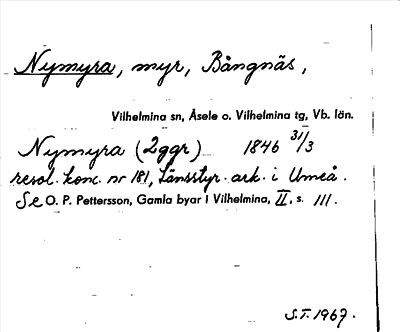 Nymyra, myr, Bångnäs,
Vilhelmina sn, Åsele o. Vilhelmina tg, Vb. län.
Nymyra (2ggr) 1846 31/3
resol. konc. nr 181, Länsstyr. ark. i Umeå.
Se O. P. Pettersson, Gamla byar i Vilhelmina, II, s. 111.
S.T. 1967.